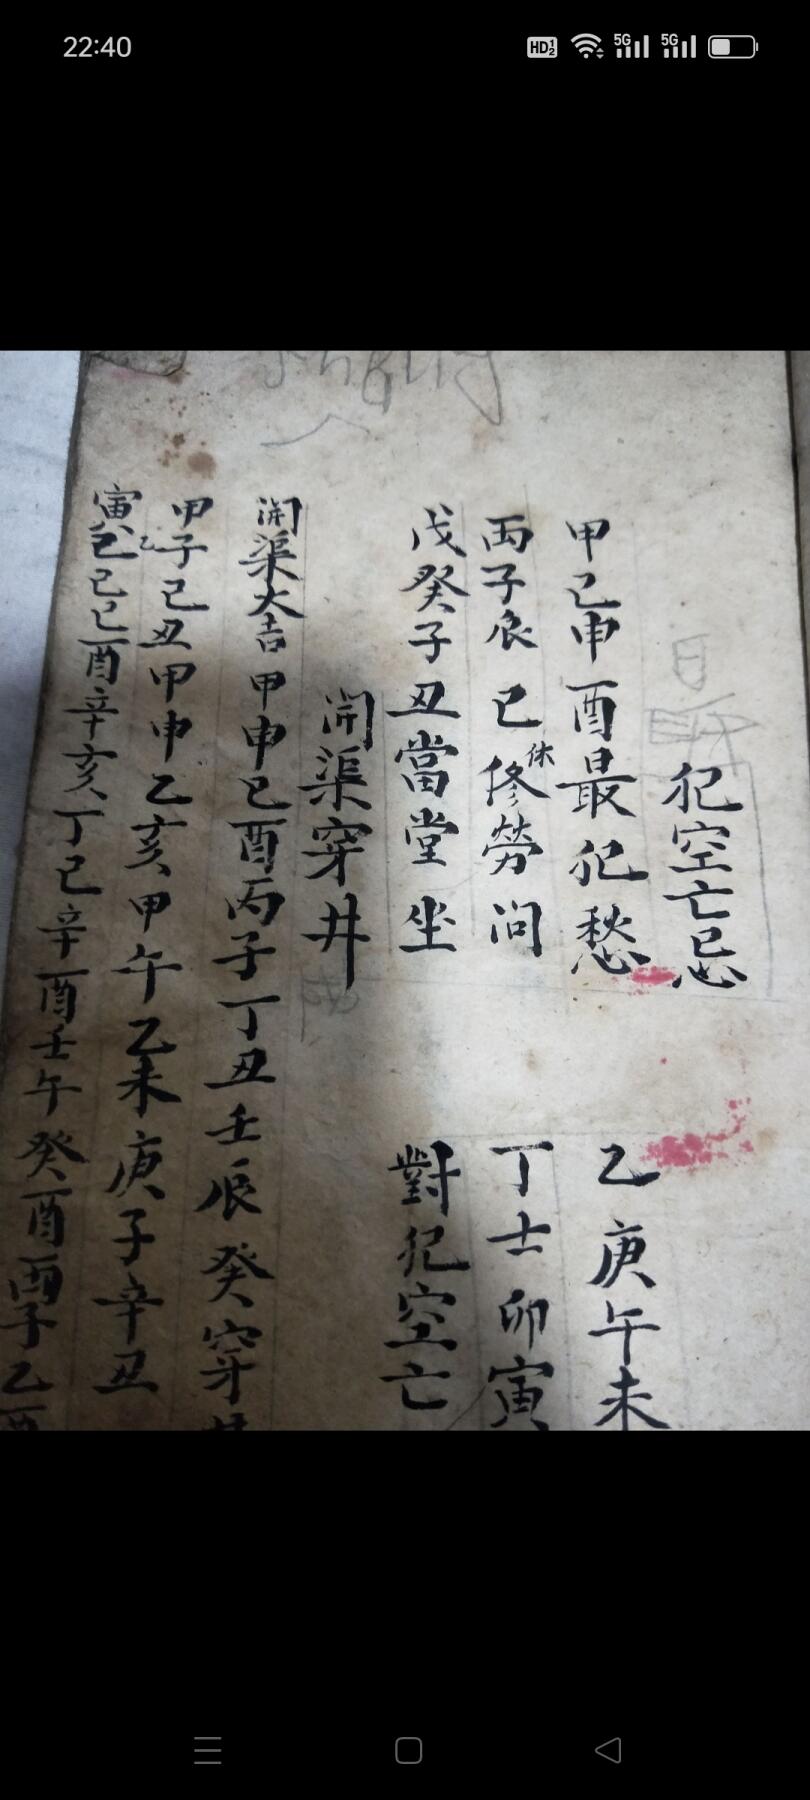 22:40
犯空亡忌
甲己申酉最犯愁
乙庚午未
丙子辰巳修勞問
休
丁壬卯寅
戊癸子丑當堂坐
對犯空亡
開渠穿井
開渠大吉甲申巳酉丙子丁丑壬辰癸穿井
甲子乙己丑甲申乙亥甲午乙未庚子辛丑
寅己巳酉辛亥丁巳辛酉壬午癸酉丙子乙酉